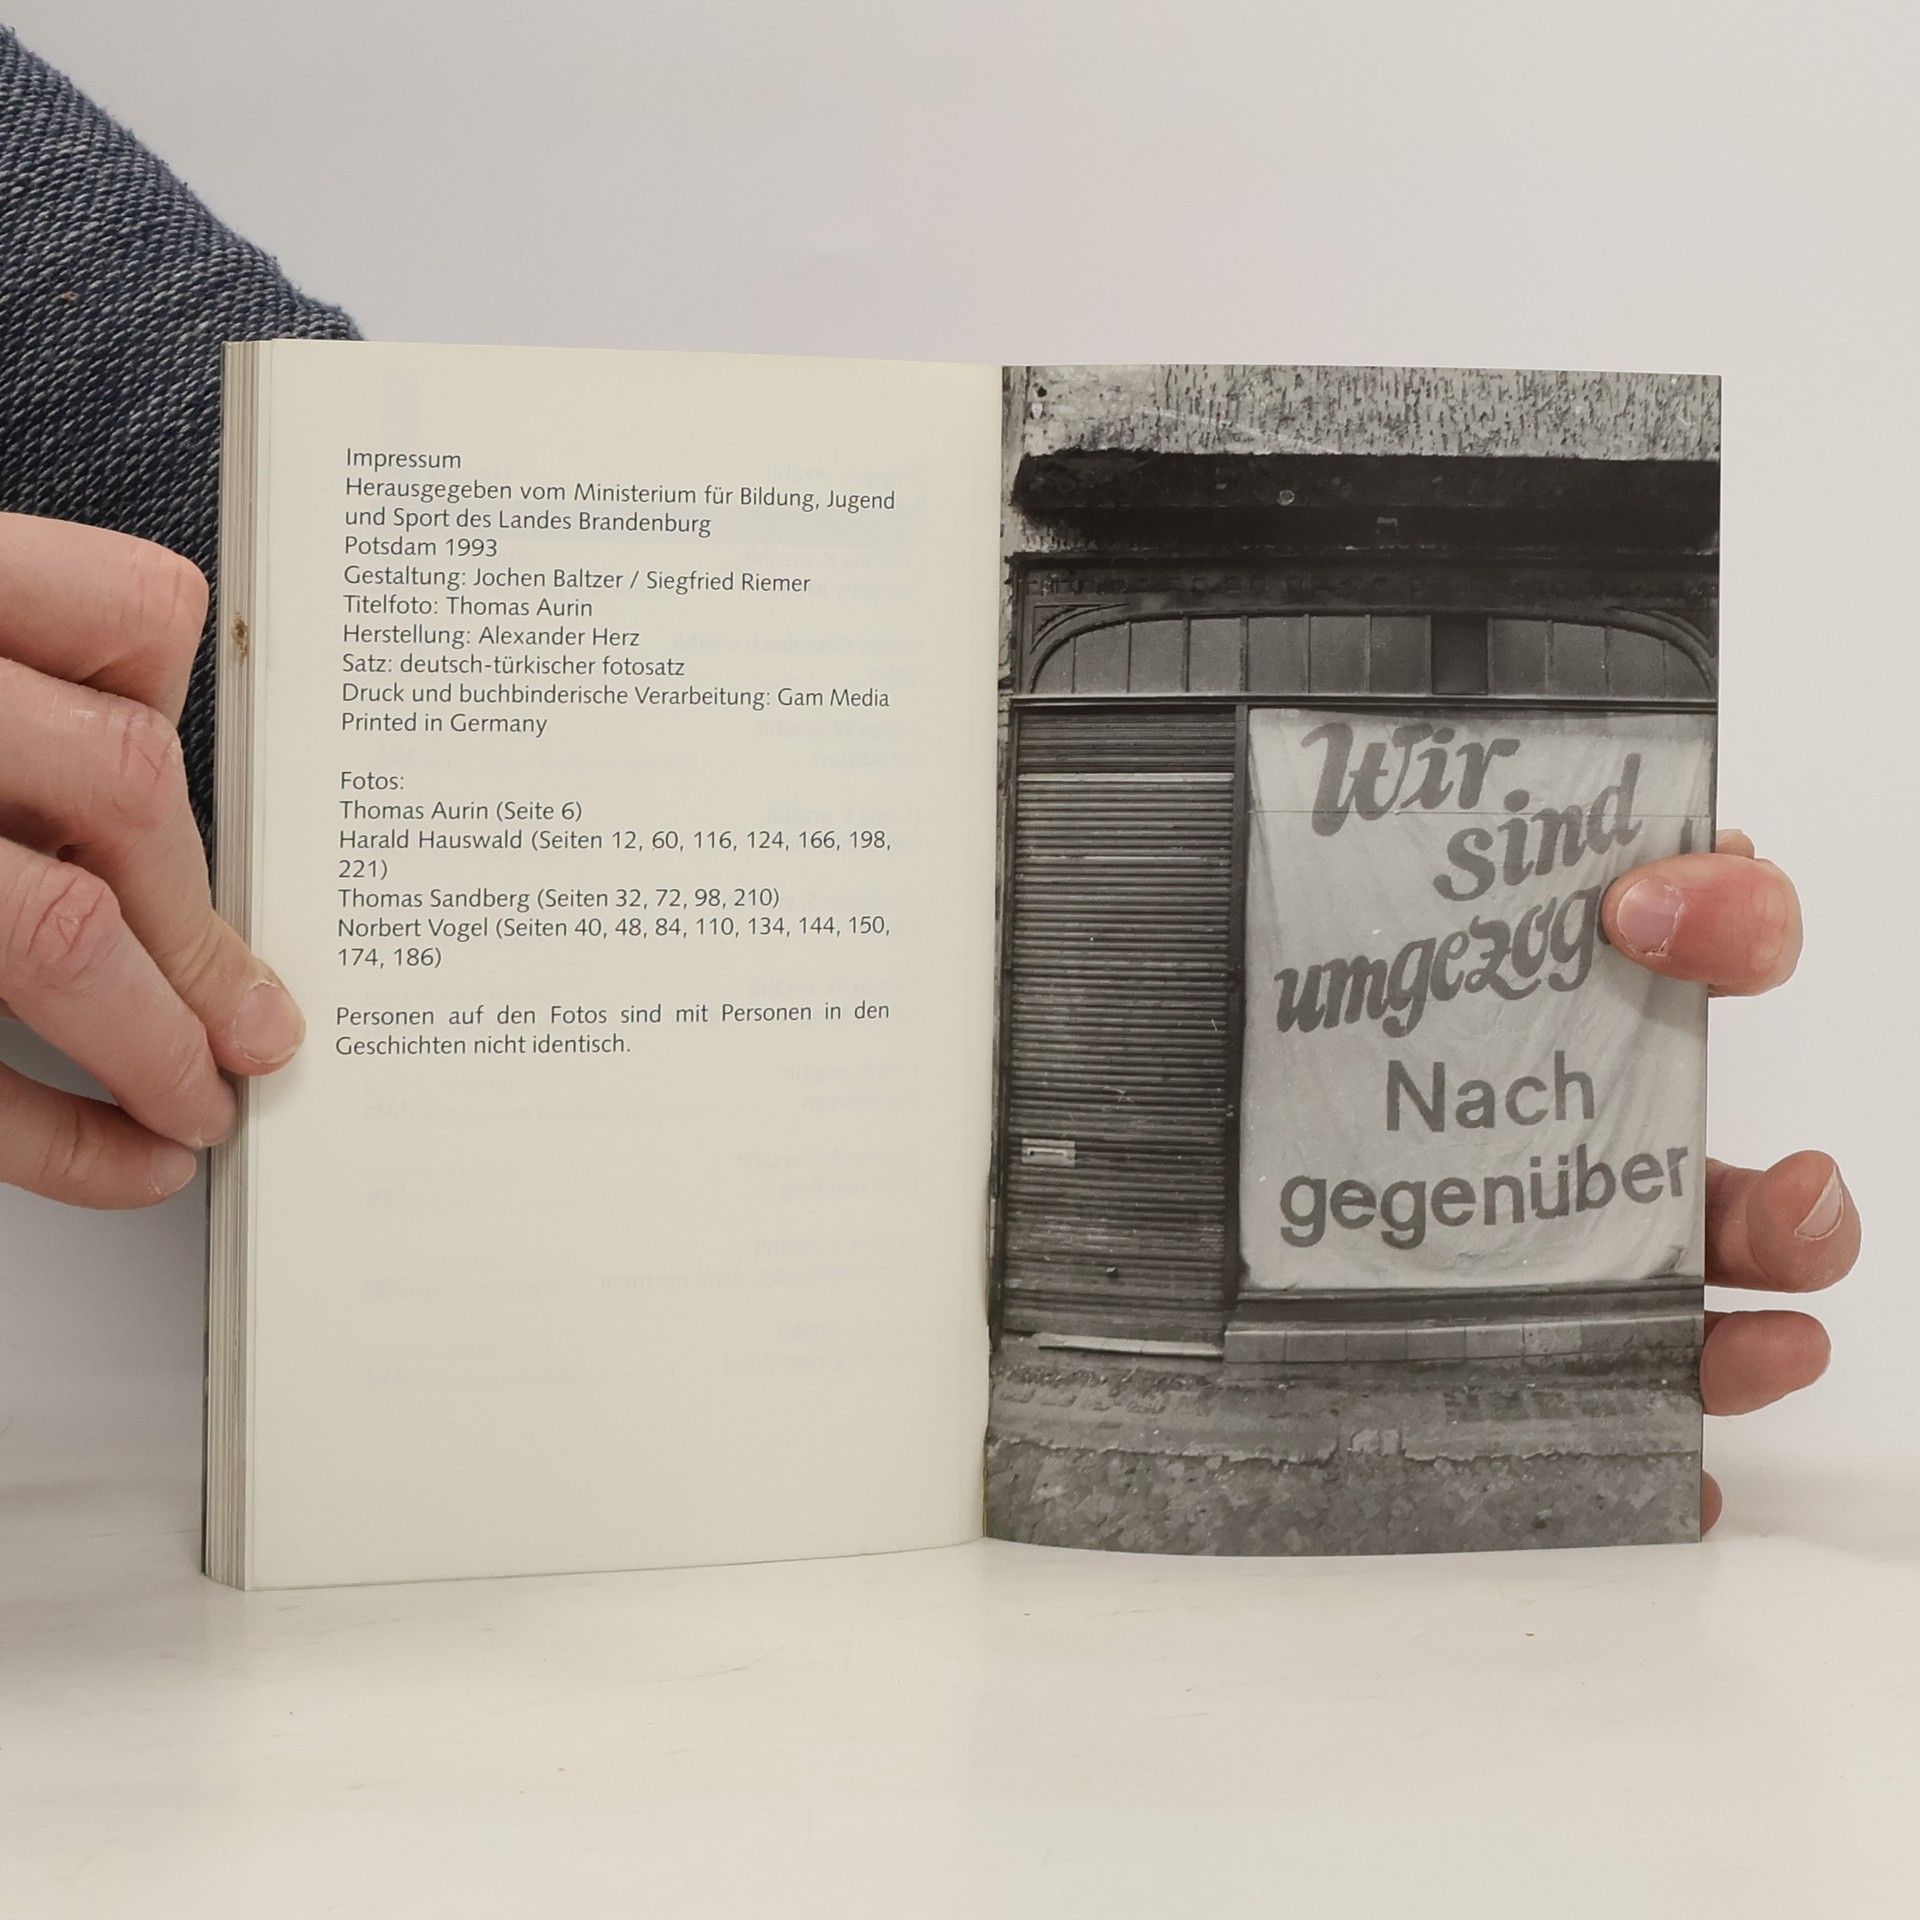 Impressum
Herausgegeben vom Ministerium für Bildung, Jugend
und Sport des Landes Brandenburg
Potsdam 1993
Gestaltung: Jochen Baltzer / Siegfried Riemer
Titelfoto: Thomas Aurin
Herstellung: Alexander Herz
Satz: deutsch-türkischer fotosatz
Druck und buchbinderische Verarbeitung: Gam Media
Printed in Germany
Fotos:
Thomas Aurin (Seite 6)
Harald Hauswald (Seiten 12, 60, 116, 124, 166, 198,
221)
Thomas Sandberg (Seiten 32, 72, 98, 210)
Norbert Vogel (Seiten 40, 48, 84, 110, 134, 144, 150,
174, 186)
Personen auf den Fotos sind mit Personen in den
Geschichten nicht identisch.
Wir
sind
umgezog
Nach
gegenüber